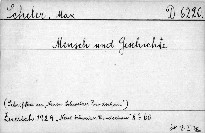 Scheler, Max D 6296.
Mensch und Geschichte
(Schriften der "Neuen Schweizer Rundschau")
Zürich 1929 "Neue Schweizer Rundschau" 8° 60